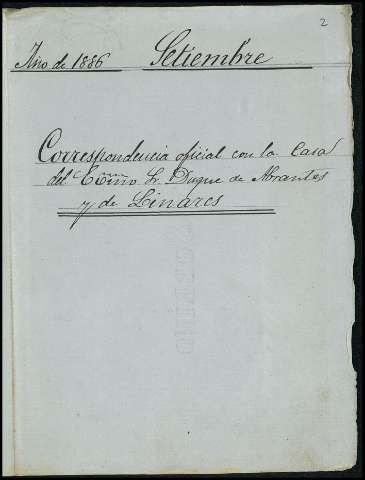 2
Año de 1886 Setiembre
Correspondencia oficial con la Casa
del Excmo Sr. Duque de Abrantes
y de Linares